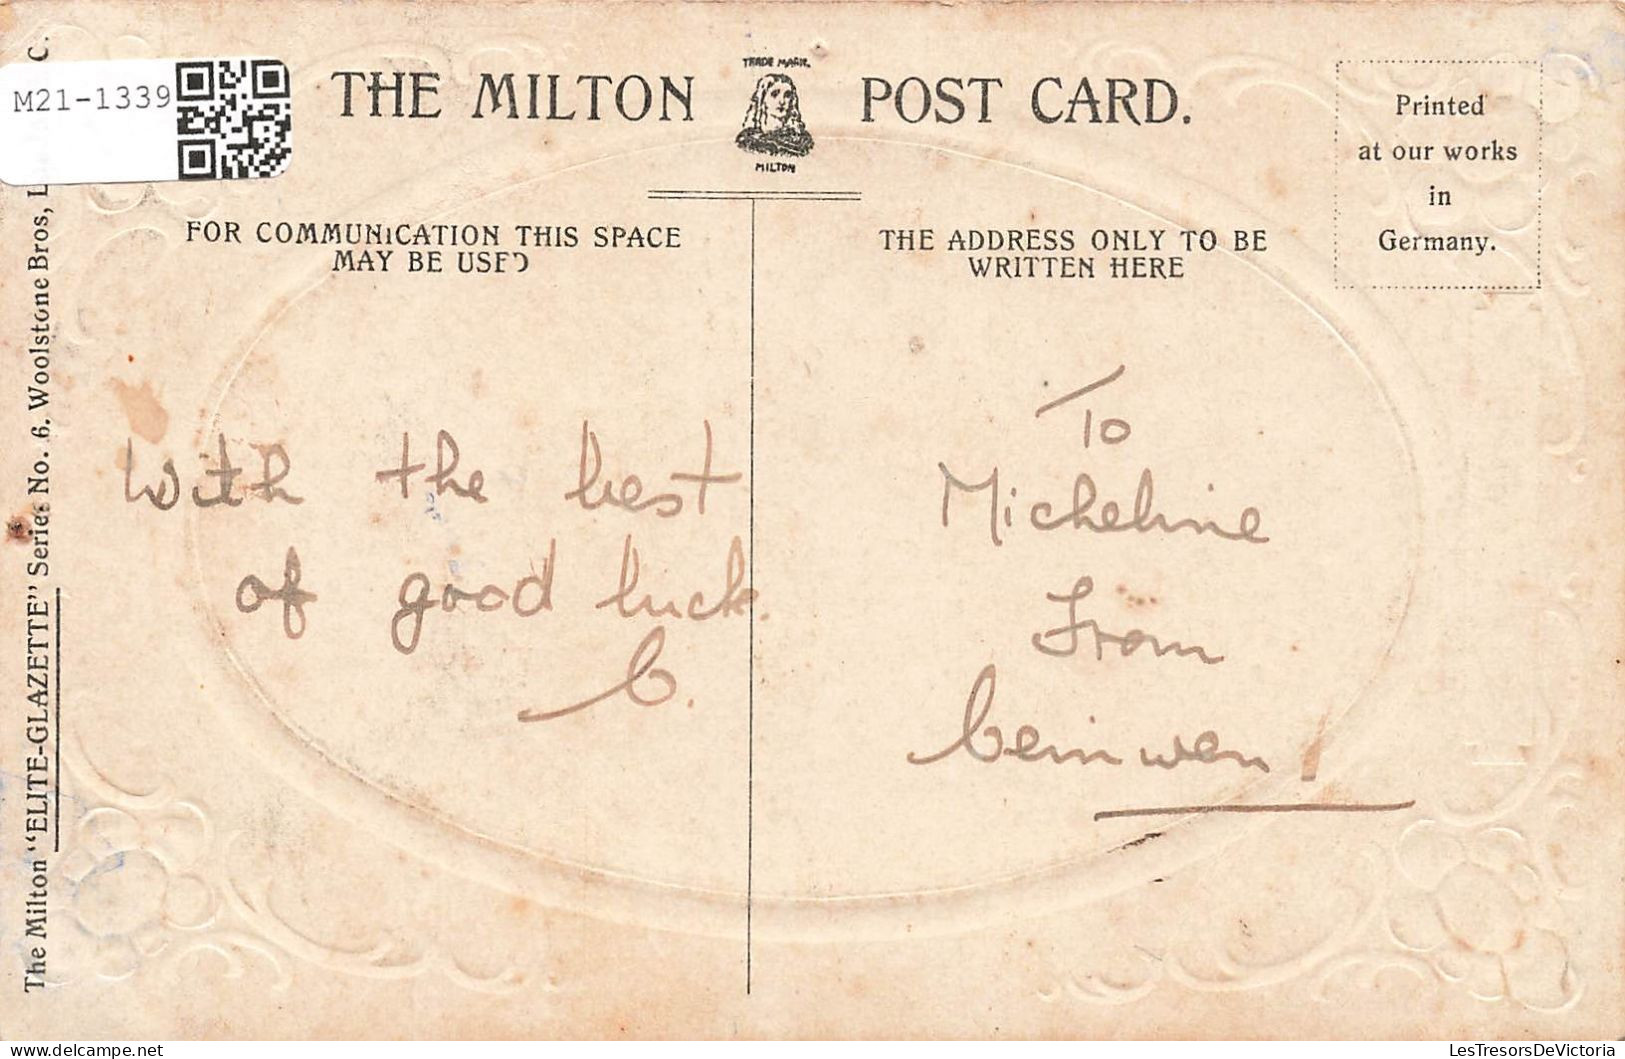 M21-1339
THE MILTON POST CARD.
TRADE MARK.
MILTON
Printed
at our works
in
Germany.
FOR COMMUNICATION THIS SPACE
MAY BE USED
THE ADDRESS ONLY TO BE
WRITTEN HERE
With the best
of good luck.
b.
To
Micheline
From
The Milton "ELITE-GLAZETTE" Series No. 6. Woolstone Bros, L C.
delcampe.net
LesTresorsDeVictoria